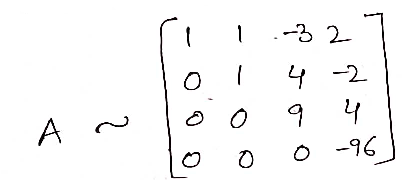 1 1 -3 2
0 1 4 -2
A ~ 0 0 9 4
0 0 0 -96